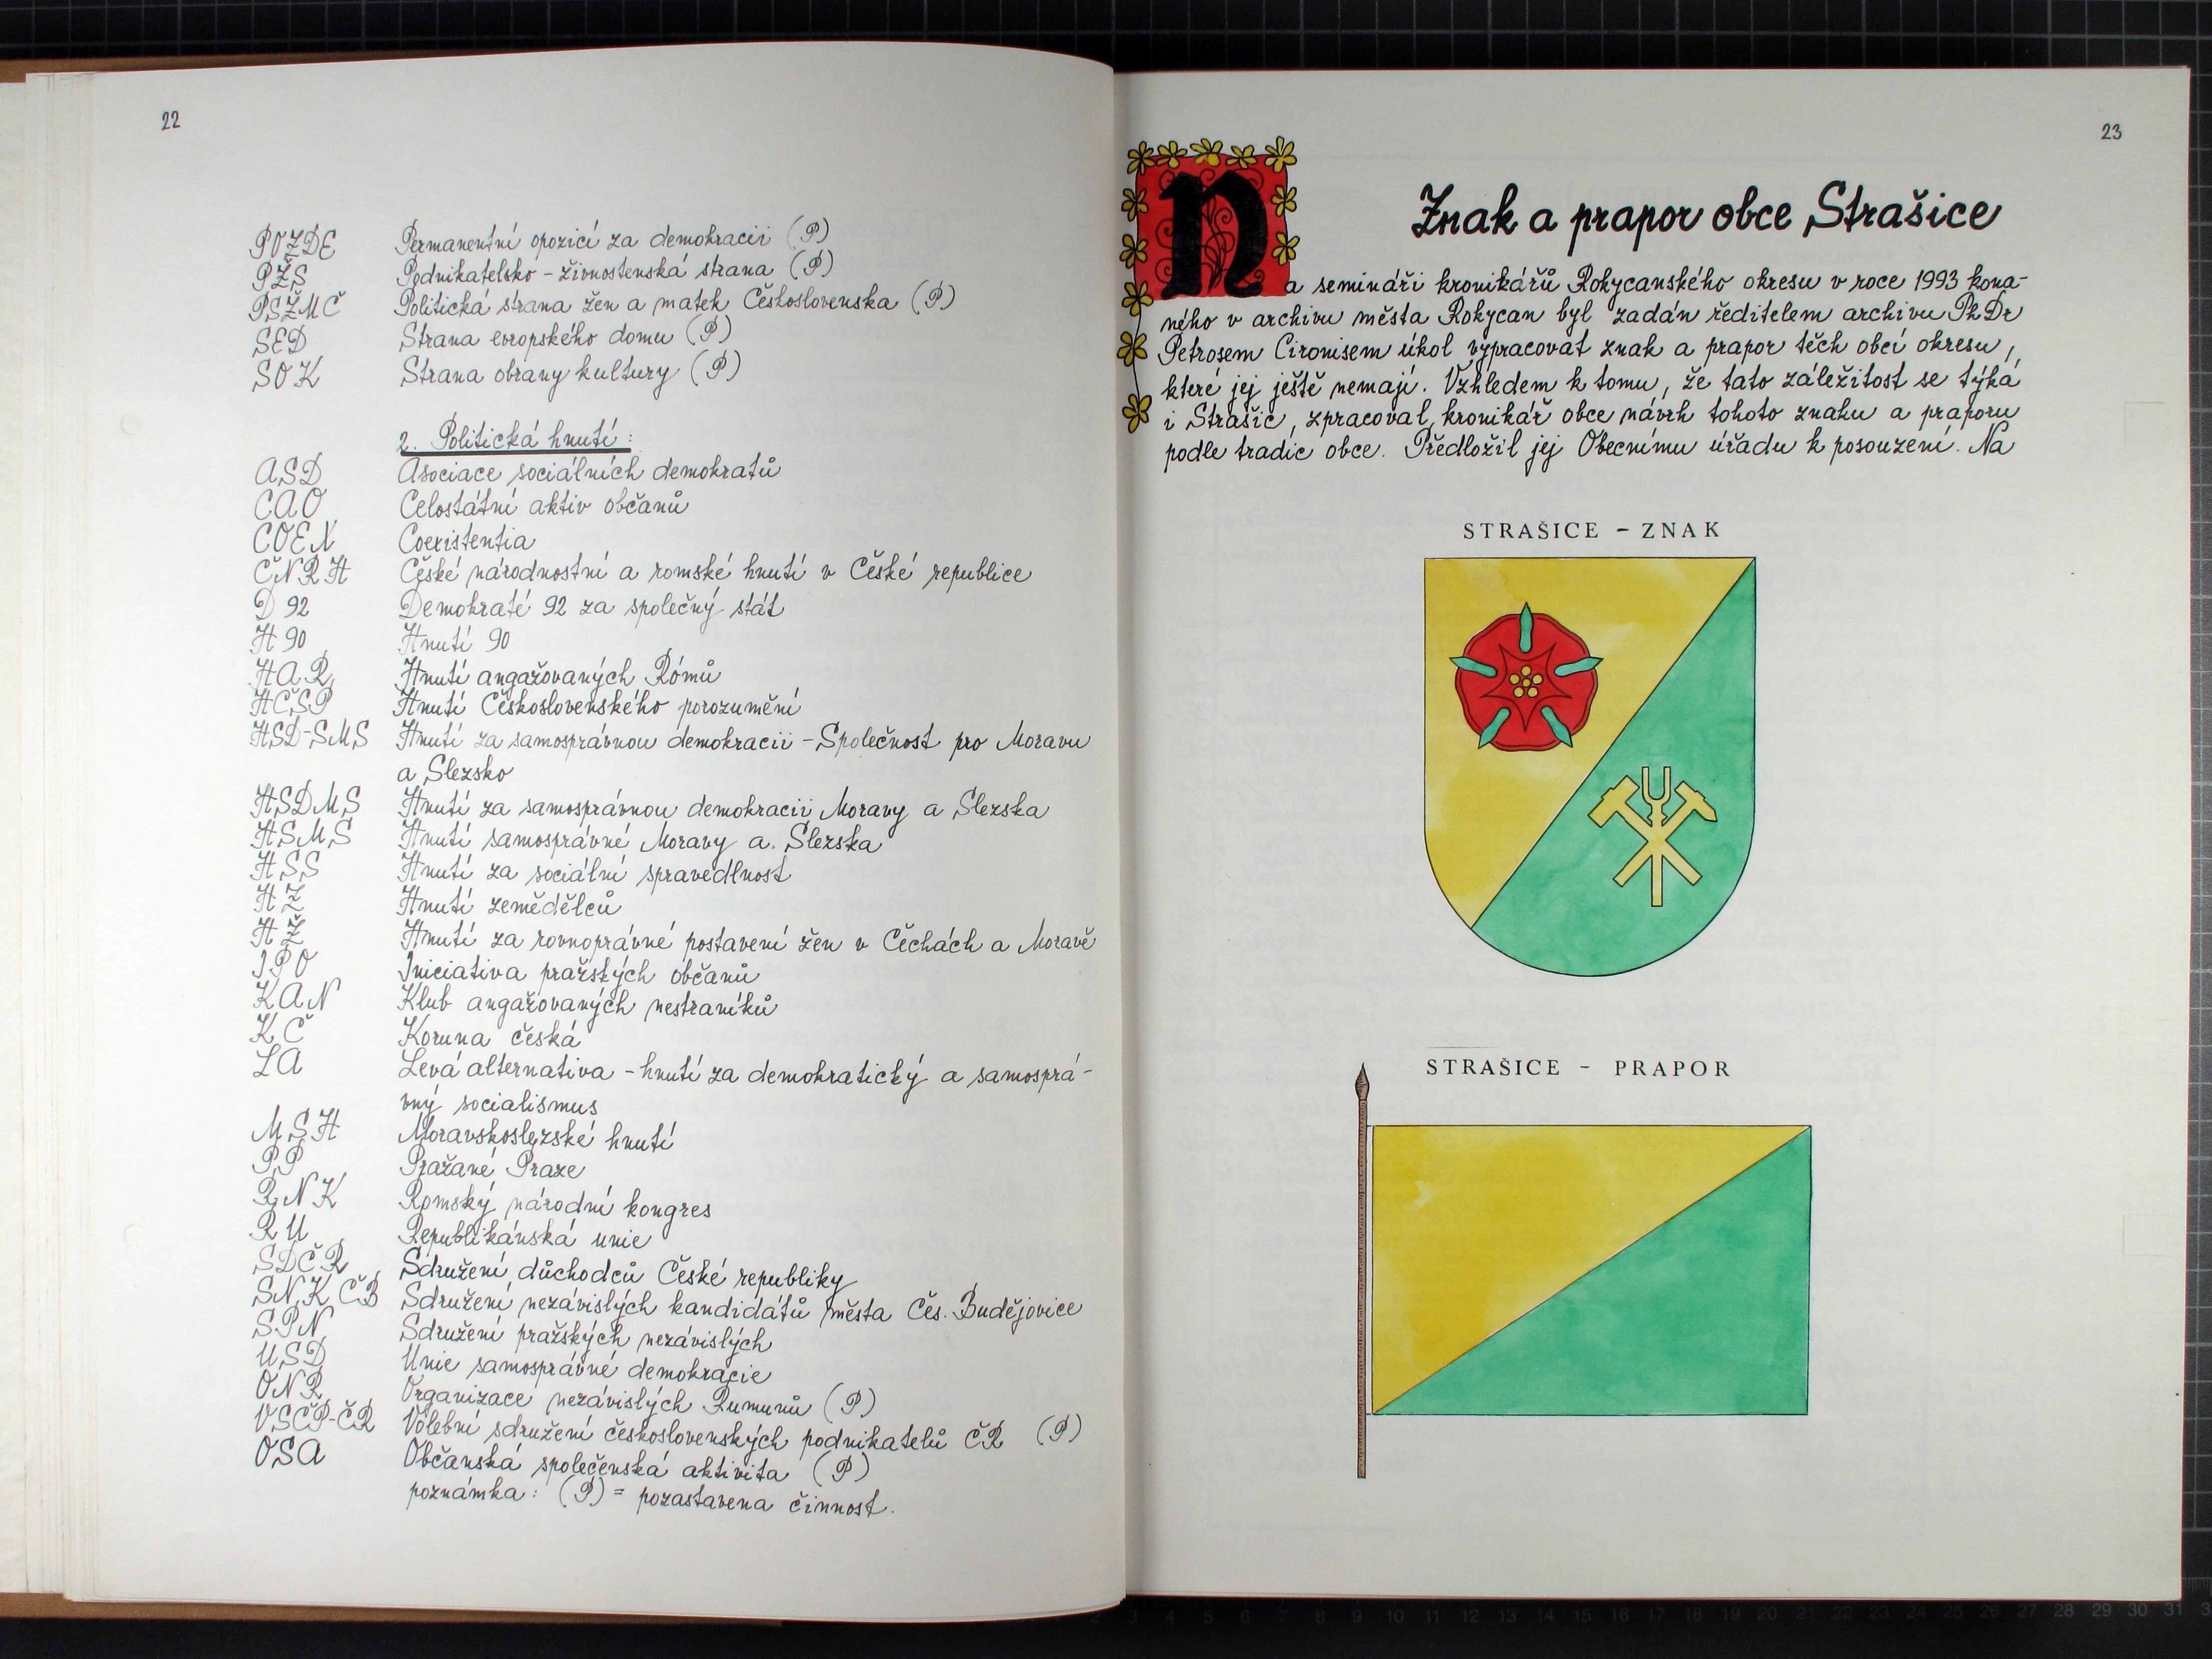 22
POZDE Permanentní opozicí za demokracii (P)
PŽS Podnikatelsko-živnostenská strana (P)
PSŽMČ Politická strana žen a matek Československa (P)
SED Strana evropského domu (P)
SOK Strana obrany kultury (P)
2. Politická hnutí:
ASD Asociace sociálních demokratů
CAO Celostátní aktiv občanů
COEX Coexistentia
ČNRH České národnostní a romské hnutí v České republice
D 92 Demokraté 92 za společný stát
H 90 Hnutí 90
HAR Hnutí angažovaných Rómů
HČSP Hnutí Československého porozumění
HSD-SMS Hnutí za samosprávnou demokracii - Společnost pro Moravu
a Slezsko
HSDMS Hnutí za samosprávnou demokracii Moravy a Slezska
HSMS Hnutí samosprávné Moravy a. Slezska
HSS Hnutí za sociální spravedlnost
HZ Hnutí zemědělců
HŽ Hnutí za rovnoprávné postavení žen v Čechách a Moravě
IPO Iniciativa pražských občanů
KAN Klub angažovaných nestraníků
KČ Koruna česká
LA Levá alternativa - hnutí za demokratický a samosprá-
vný socialismus
MSH Moravskoslezské hnutí
PP Pražané Praze
RNK Romský národní kongres
RU Republikánská unie
SDČR Sdružení důchodců České republiky
SNK ČB Sdružení nezávislých kandidátů města Čes. Budějovice
SPN Sdružení pražských nezávislých
USD Unie samosprávné demokracie
ONR Organizace nezávislých Rumunů (P)
VSČP-ČR Volební sdružení československých podnikatelů ČR (P)
OSA Občanská společenská aktivita (P)
poznámka: (P) = pozastavena činnost.
23
Znak a prapor obce Strašice
Na semináři kronikářů Rokycanského okresu v roce 1993 kona-
ného v archivu města Rokycan byl zadán ředitelem archivu PhDr
Petrosem Cironisem úkol vypracovat znak a prapor těch obcí okresu,
které jej ještě nemají. Vzhledem k tomu, že tato záležitost se týká
i Strašic, zpracoval kronikář obce návrh tohoto znaku a praporu
podle tradic obce. Předložil jej Obecnímu úřadu k posouzení. Na
STRAŠICE - ZNAK
STRAŠICE - PRAPOR
2 3 4 5 6 7 8 9 10 11 12 13 14 15 16 17 18 19 20 21 22 23 24 25 26 27 28 29 30 31